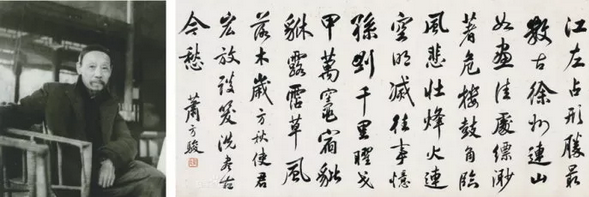 江左占形勝最
數古徐州連山
如畫佳處縹渺
著危樓鼓角臨
風悲壯烽火連
空明滅往事憶
孫劉千里曜戈
甲萬竈宿貔
貅露霑草風
落木歲方秋使君
宏放談笑洗盡古
今愁
蕭方駿